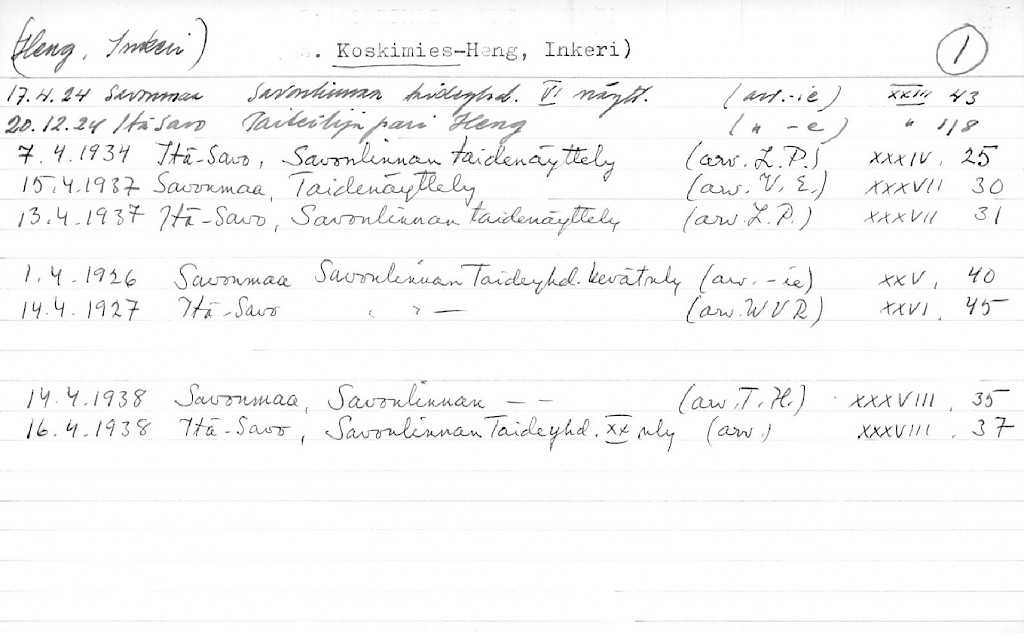 (Heng, Inkeri) . Koskimies-Heng, Inkeri) 1
17.4.24 Savonmaa Savonlinnan taideyhd. VI näytt. (arv.-ie) XXIII 43
20.12.24 Itä Savo Taiteilijapari Heng (" -e) " 118
7.4.1934 Itä-Savo, Savonlinnan taidenäyttely (arv. L.P.) XXXIV, 25
15.4.1937 Savonmaa, Taidenäyttely (arv. V.E.) XXXVII 30
13.4.1937 Itä-Savo, Savonlinnan taidenäyttely (arv. L.P.) XXXVII 31
1.4.1926 Savonmaa Savonlinnan Taideyhd. kevätnly (arv. -ie) XXV, 40
14.4.1927 Itä-Savo " — (arv. WVR) XXVI, 45
14.4.1938 Savonmaa, Savonlinnan — — (arv. T.H.) XXXVIII, 35
16.4.1938 Itä-Savo, Savonlinnan Taideyhd. XX nly (arv.) XXXVIII, 37